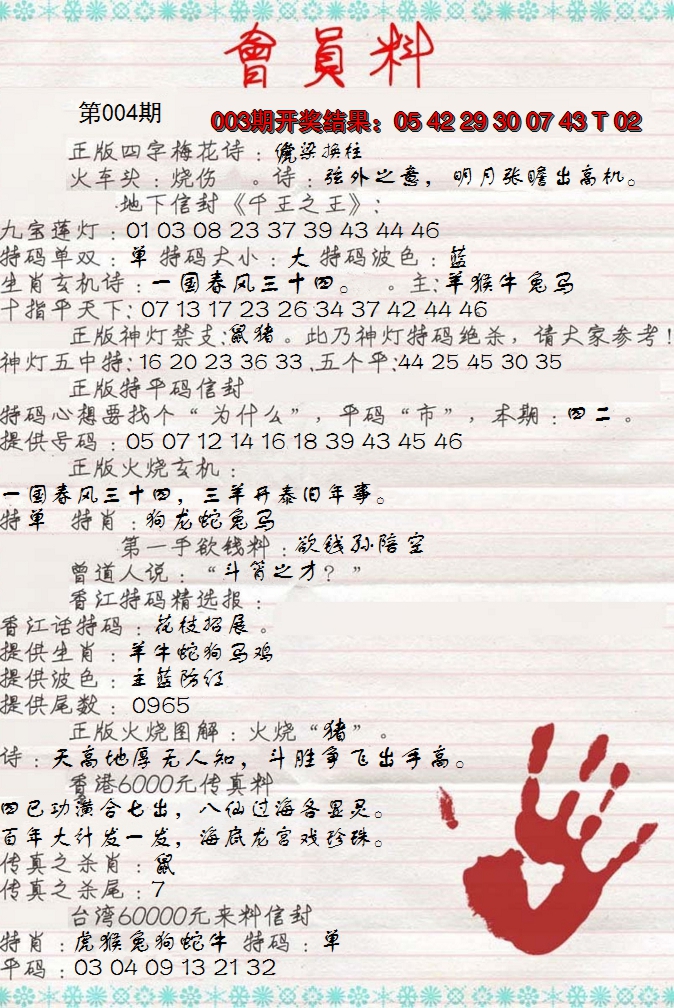 會員料
第004期
003期开奖结果：05 42 29 30 07 43 T 02
正版四字梅花诗：偷梁换柱
火车头：烧伤 。诗：弦外之意，明月张瞻出高机。
地下信封《千王之王》：
九宝莲灯：01 03 08 23 37 39 43 44 46
特码单双：单 特码大小：大 特码波色：蓝
生肖玄机诗：一国春风三十四。 。主：羊猴牛兔马
十指平天下：07 13 17 23 26 34 37 42 44 46
正版神灯禁支：鼠猪。此乃神灯特码绝杀，请大家参考！
神灯五中特：16 20 23 36 33 .五个平：44 25 45 30 35
正版特平码信封
特码心想要找个“为什么”，平码“市”，本期：四二。
提供号码：05 07 12 14 16 18 39 43 45 46
正版火烧玄机：
一国春风三十四，三羊开泰旧年事。
特单 特肖：狗龙蛇兔马
第一手欲钱料：欲钱孙陪空
曾道人说：“斗筲之才？”
香江特码精选报：
香江话特码：花枝招展。
提供生肖：羊牛蛇狗马鸡
提供波色：主蓝防红
提供尾数：0965
正版火烧图解：火烧“猪”。
诗：天高地厚无人知，斗胜争飞出手高。
香港6000元传真料
四已功满合七出，八仙过海各显灵。
百年大计发一发，海底龙宫戏珍珠。
传真之杀肖：鼠
传真之杀尾：7
台湾60000元来料信封
特肖：虎猴兔狗蛇牛 特码：单
平码：03 04 09 13 21 32